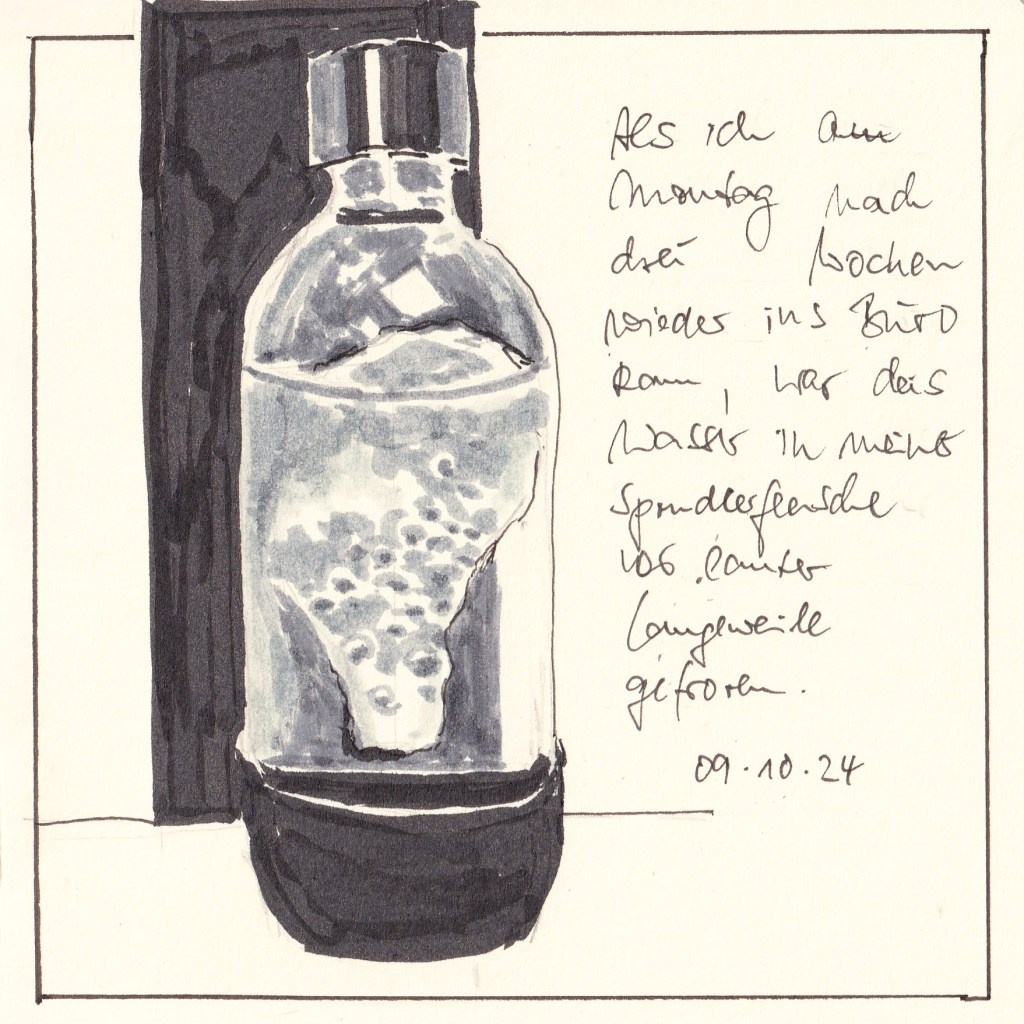 Als ich am
Montag nach
drei Wochen
wieder ins Büro
kam, war das
Wasser in meiner
Sprudlerflasche
vor lauter
Langeweile
gefroren.
09.10.24